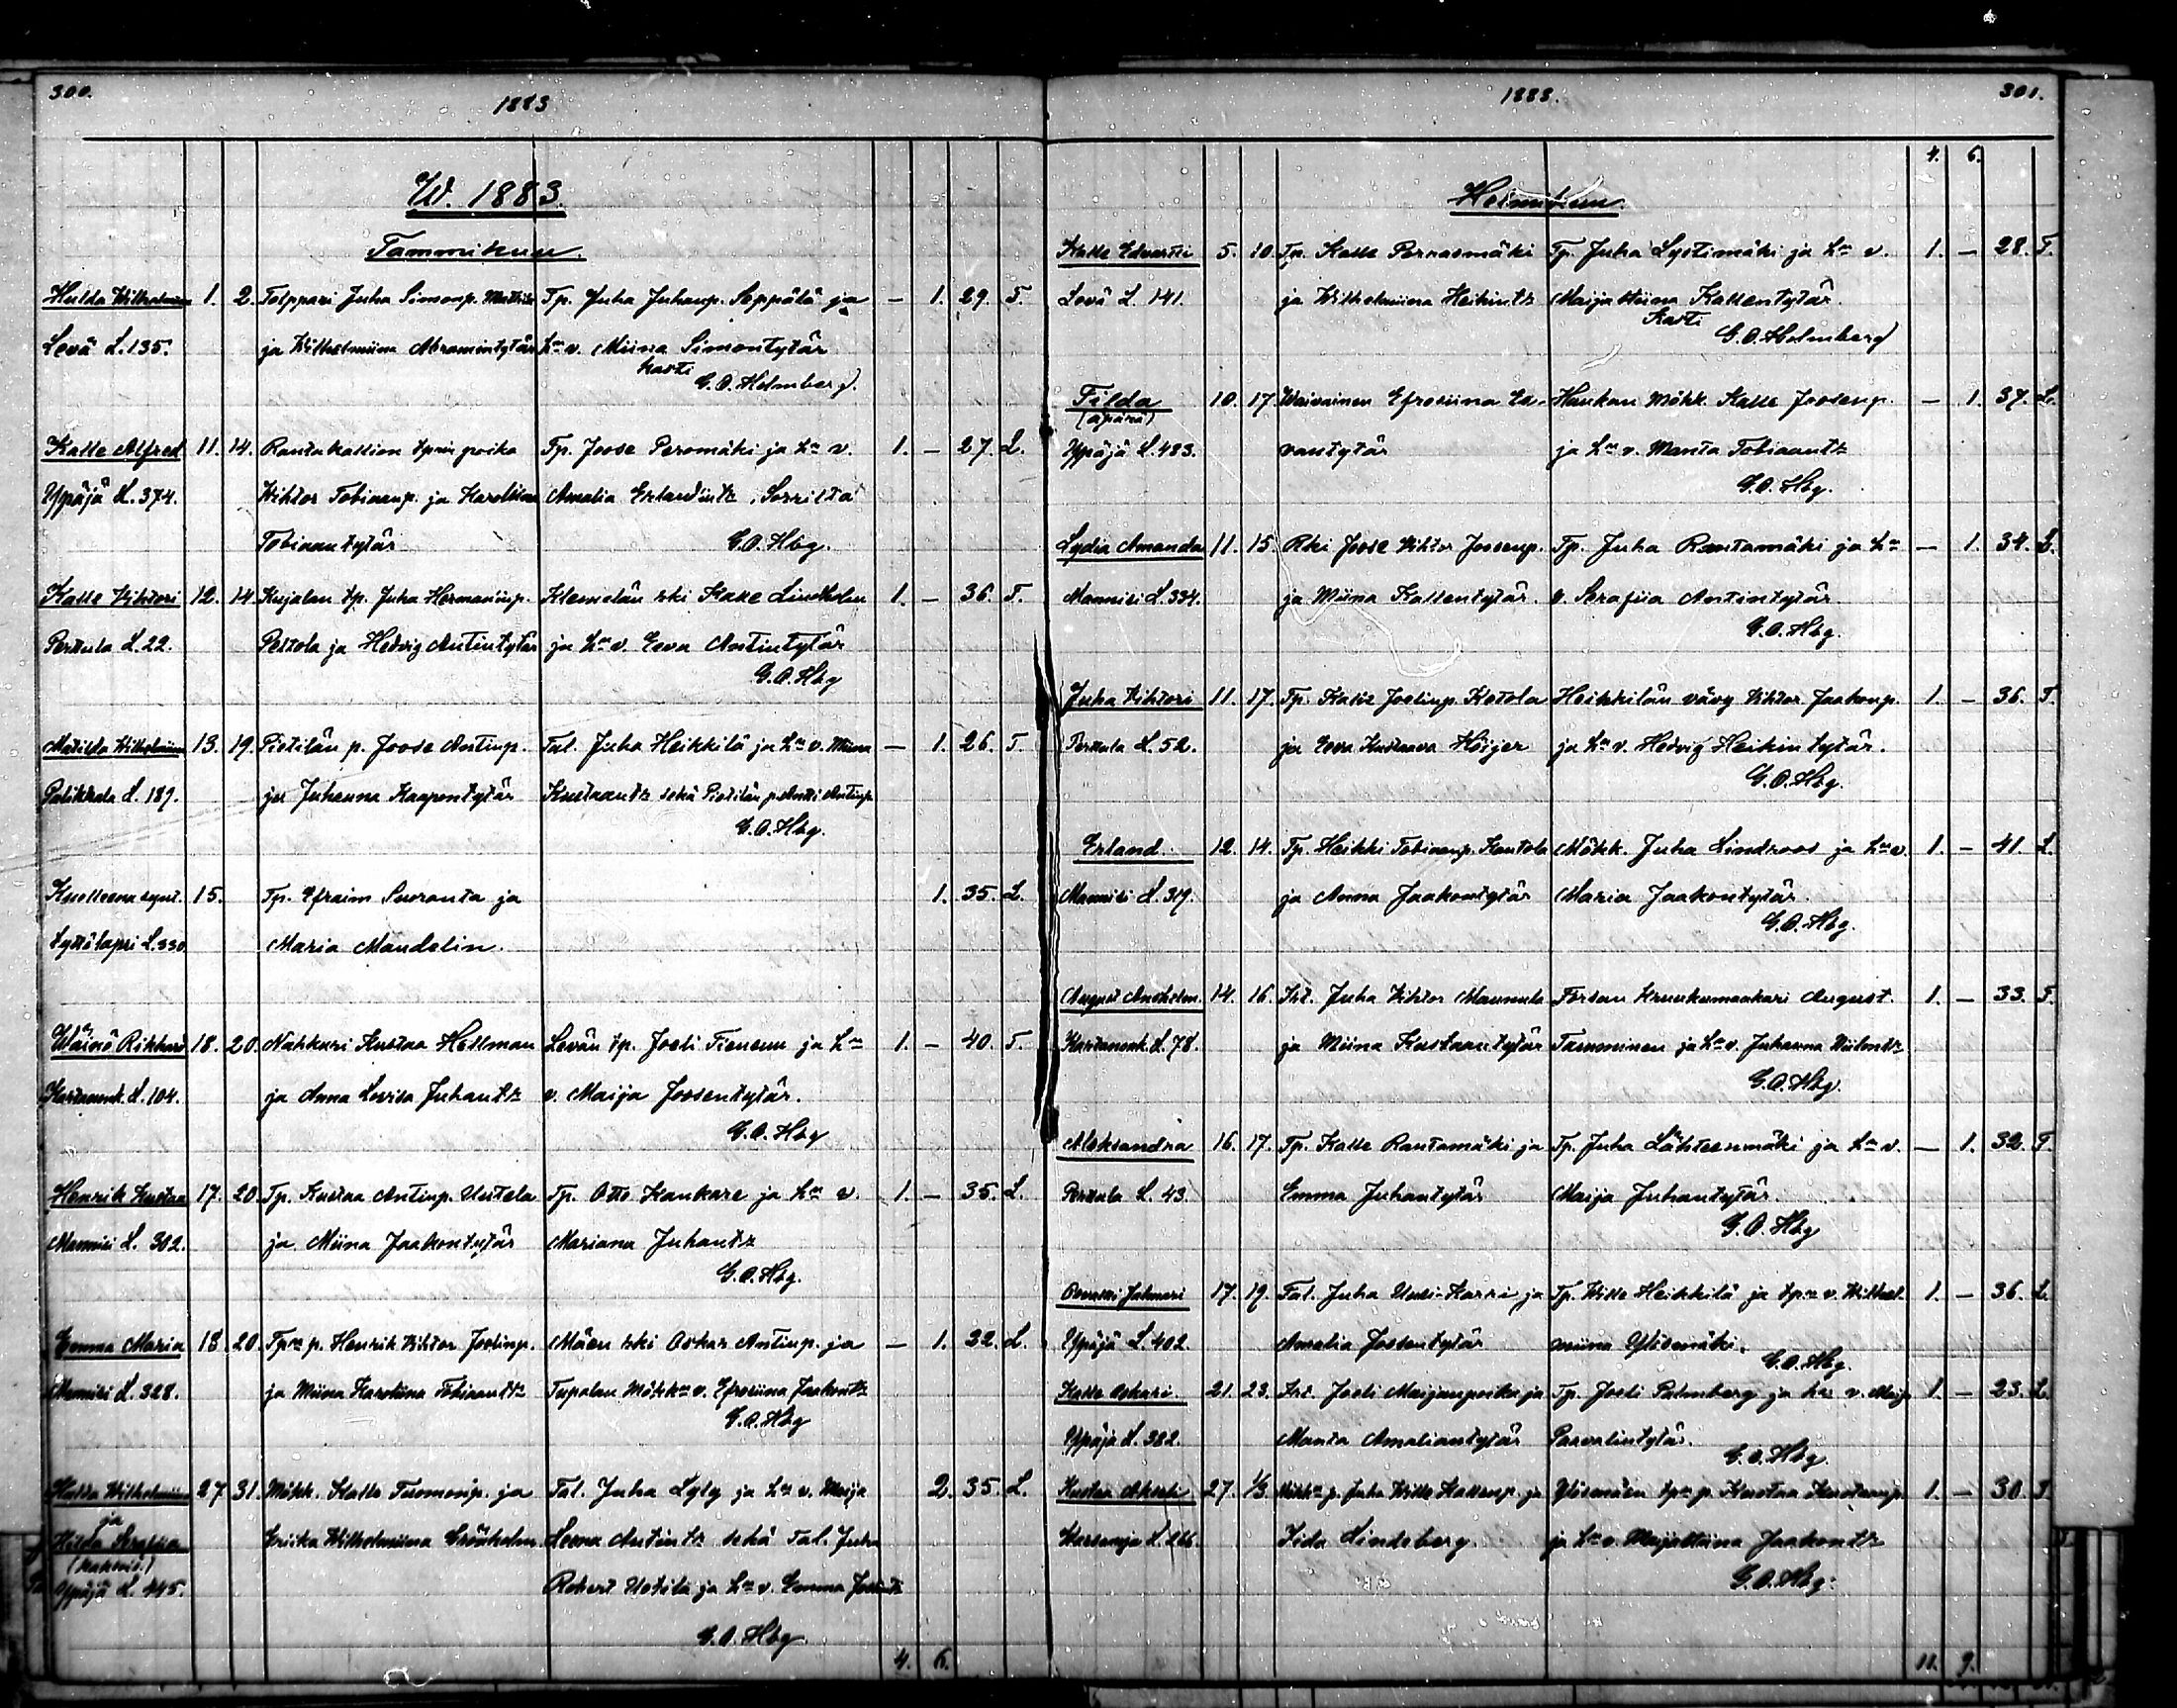 300.
1883
W. 1883.
Tammikuu.
Hulda Wilhelmiina 1. 2. Torppari Juha Simonp. Mattila Tp. Juha Juhanp. Seppälä ja — 1. 29. T.
Levä L. 135. ja Wilhelmiina Abramintytär hn v. Miina Simontytär
Kasti G.O. Holmberg.
Kalle Alfred 11. 14. Rantakallion tpn poika Tp. Joose Peromäki ja hn v. 1. — 27. L.
Ypäjä L. 374. Wihtor Tobiaanp. ja Karoliina Amalia Erlandintr
Tobiaantytär G.O. Hbg.
Kalle Wihtori 12. 14. Kujalan tp. Juha Hermannip. Klemelän rki Kalle Lindholm 1. — 36. T.
Perttula L. 22. Peltola ja Hedvig Antintytär ja hn v. Eeva Antintytär
G.O. Hbg
Matilda Wilhelmiina 13. 19. Pietilän p. Joose Antinp. Tal. Juha Heikkilä ja hn v. Miina — 1. 26. T.
Palikkala L. 189. ja Juhanna Kaapontytär Kustaantr sekä Pietilän p. Antti Antinp.
G.O. Hbg.
Kuolleena synt. 15. Tp. Efraim Suoranta ja 1. 35. L.
tyttölapsi L. 330 Maria Mandelin.
Wäinö Rikhard 18. 20. Nahkuri Kustaa Hellman Levän tp. Joeli Tiensuu ja hn 1. — 40. T.
L. 104. ja Anna Lovisa Juhantr v. Maija Joosentytär.
G.O. Hbg
Henrik Kustaa 17. 20. Tp. Kustaa Antinp. Uutela Tp. Otto Kankare ja hn v. 1. — 35. L.
Mannisi L. 302. ja Miina Jaakontytär Mariana Juhantr
G.O. Hbg.
Emma Maria 18. 20. Tpn p. Henrik Wihtor Joelinp. Mäen rki Oskar Antinp. ja — 1. 32. L.
Mannisi L. 328. ja Miina Karoliina Tobiaantr Tupalan Mökkn v. Efrosiina Jaakontr
G.O. Hbg
Hulda Wilhelmiina 27. 31. Mökk. Kalle Tuomonp. ja Tal. Juha Lyly ja hn v. Maija 2. 35. L.
ja
Hilda Serafiia Eriika Wilhelmiina Grönholm Leena Antintr sekä Tal. Juha
(kaksois.)
Ypäjä L. 445. Robert Uotila ja hn v. Emma
G.O. Hbg
4. 6.
1883.
301.
4. 6.
Helmikuu.
Kalle Edvartti 5. 10. Tp. Kalle Pernasmäki Tp. Juha Lystimäki ja hn v. 1. — 28. T.
Levä L. 141. ja Wilhelmiina Heikintr Maija Miina Kallentytär
Kasti
G.O. Holmberg
Tilda 10. 17. Waivainen Efrosiina Ed- Haukan Mökk. Kalle Joosenp. — 1. 37. L.
(äpärä)
Ypäjä L. 483. vantytär ja hn v. Manta Tobiaantr
G.O. Hbg.
Lydia Amanda 11. 15. Rki Joose Wihtor Joosenp. Tp. Juha Rantamäki ja hn — 1. 34. L.
Mannisi L. 334. ja Miina Kallentytär. v. Serafiia Antintytär
G.O. Hbg.
Juha Wihtori 11. 17. Tp. Kalle Joelinp. Ketola Heikkilän vävy Wihtor Jaakonp. 1. — 36. T.
Perttula L. 52. ja Eeva Kustaava Höijer ja hn v. Hedvig Heikintytär.
G.O. Hbg.
Erland. 12. 14. Tp. Heikki Tobiaanp. Kantola Mökk. Juha Lindroos ja hn v. 1. — 41. L.
Mannisi L. 319. ja Anna Jaakontytär Maria Jaakontytär.
G.O. Hbg.
August 14. 16. Juha Wihtor Maunula Forssan August 1. — 33. T.
L. 78. ja Miina Kustaantytär Tamminen ja hn v. Juhanna
G.O. Hbg.
Aleksandra 16. 17. Tp. Kalle Rantamäki ja Tp. Juha Lähteenmäki ja hn v. — 1. 32. T.
Perttula L. 43. Emma Juhantytär Maija Juhantytär.
G.O. Hbg
Jalmari 17. 19. Tal. Juha Uusi-Karri ja Tp. Wille Heikkilä ja tpn v. Wilhel- 1. — 36. L.
Ypäjä L. 402. Amalia Joosentytär miina Ylisemäki.
G.O. Hbg.
Kalle Oskari. 21. 23. Joeli Maijanpoika ja Tp. Joeli Palmberg ja hn v. Maija 1. — 23. L.
Ypäjä L. 382. Manta Amaliantytär Paavalintytär.
G.O. Hbg.
Kustaa Akseli 27. 1/3. Mökkn p. Juha Wille Kallenp. ja Ylismäen tpn p. Kustaa Kustaanp. 1. — 30. T.
L. 266. Iida Lindeberg. ja hn v. Maija Miina Jaakontr
G.O. Hbg.
11. 9.